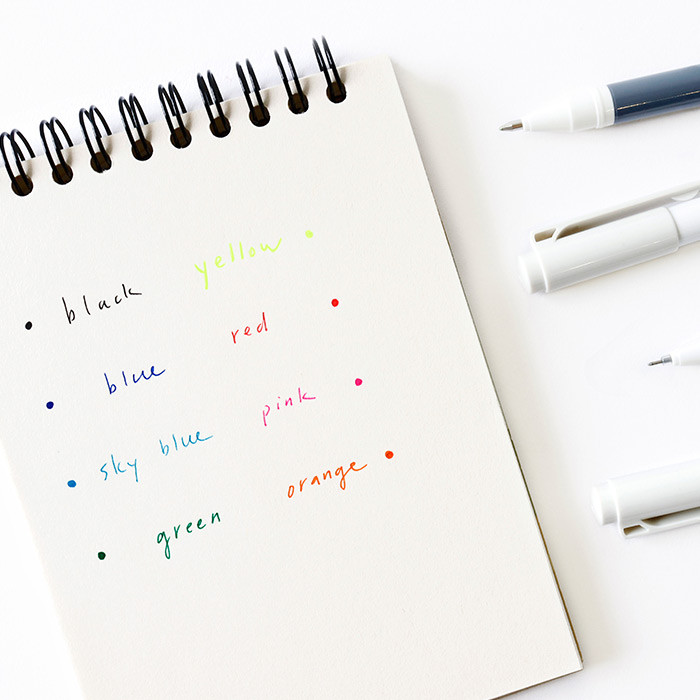 black yellow
blue red
sky blue pink
green orange